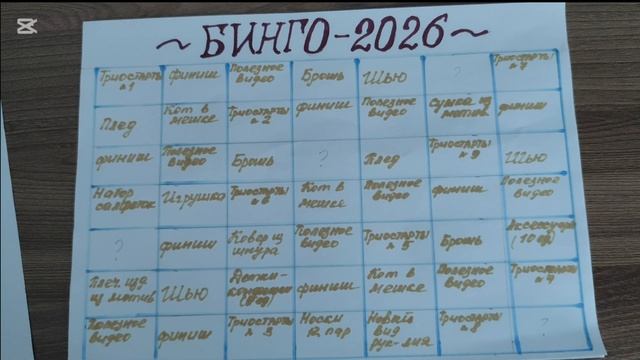 CapCut
~ БИНГО-2026 ~
Триостарты №1 финиш Полезное видео Брошь Шью ? Триостарты №7
Плед Кот в мешке Триостарты №2 финиш Полезное видео Сумка из мотив финиш
финиш Полезное видео Брошь ? Плед Триостарты №9 Шью
Набор салфеток Игрушка Триостарты №6 Кот в мешке Полезное видео финиш Полезное видео
? финиш Ковёр из шнура Полезное видео Триостарты №5 Брошь Аксессуары
Шью финиш Кот в мешке Полезное видео Триостарты
Полезное видео финиш Триостарты №3 Носки 12 пар Новый вид рук-лия Триостарты ?